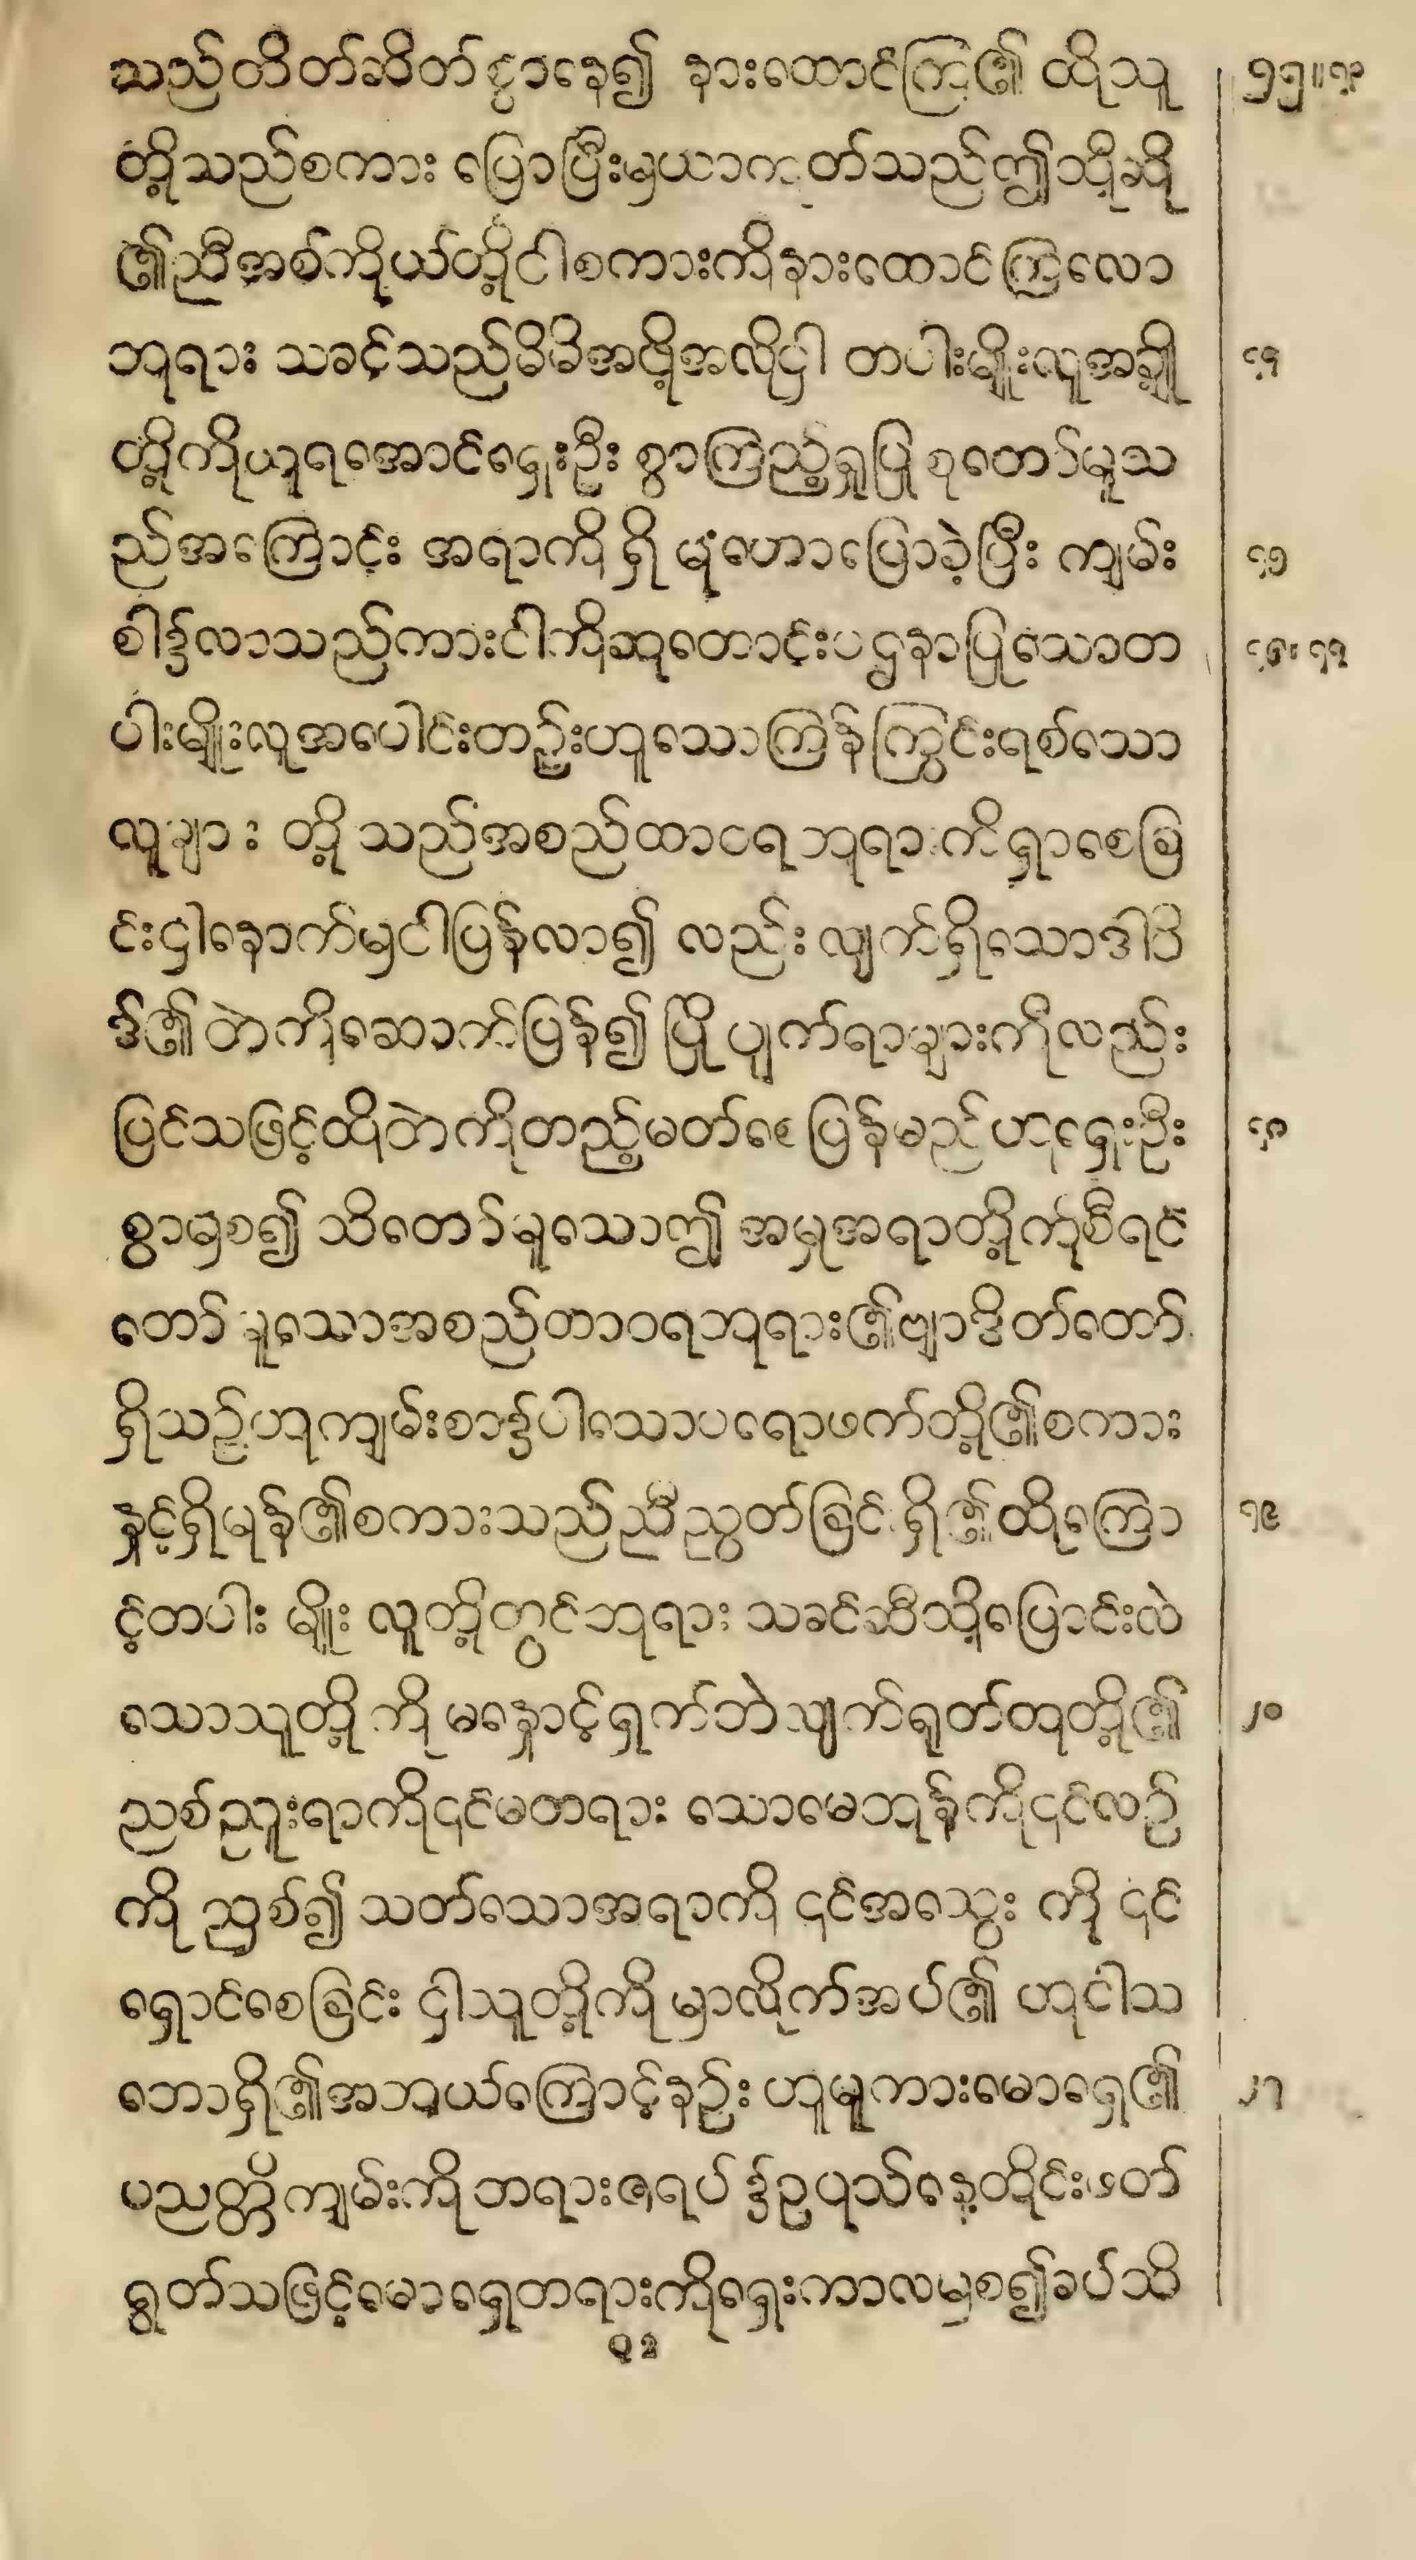 သည်တိတ်ဆိတ်စွာနေ၍ နားထောင်ကြ၏ ထိုသူ ၁၅။၁၃
တို့သည်စကား ပြောပြီးမှယာကုတ်သည်ဤသို့ဆို
၏ညီအစ်ကိုယ်တို့ငါစကားကိုနားထောင်ကြလော
ဘုရား သခင့်သည်မိမိအဖို့အလိုငှါ တပါးမျိုးလူအချို့ ၁၄
တို့ကိုယူရအောင်ရှေးဦး စွာကြည့်ရှုပြုစုတော်မူသ
ည်အကြောင့်း အရာကိုရှိမုံဟောပြောခဲ့ပြီး ကျမ်း ၁၅
စါ၌လာသည်ကားငါကိုဆုတောင့်းပဌနာပြုသောတ ၁၆း ၁၇
ပါးမျိုးလူအပေါင်းတဉ့်းဟူသောကြွန်ကြွင်းရစ်သော
လူများ တို့သည်အစည်ထာဝရဘုရားကိုရှာစေခြ
င်းငှါနောက်မှငါပြန်လာ၍ လည်းလျက်ရှိသောဒါဝိ
ဒ်၏တဲကိုဆောက်ပြန်၍ပြိုပျက်ရာများကိုလည်း
ပြင်သဖြင့်ထိုတဲကိုတည့်မတ်စေပြန်မည်ဟုရှေးဦး ၁၈
စွာမှစ၍ သိတော်မူသောဤအမှုအရာတို့ကိုစီရင်
တော်မူသောအစည်တာဝရဘုရား၏ဗျာဒိတ်တော်
ရှိသဉ်ဟုကျမ်းစာ၌ပါသောပရောဖက်တို့၏စကား
နှင့်ရှိမုန်၏စကားသည်ညီညွတ်ခြင်းရှိ၏ထိုကြော ၁၉
င့်တပါး မျိုး လူတို့တွင်ဘုရား သခင်ဆီသို့ပြောင်းလဲ
သောသူတို့ကို မနှောင့်ရှက်ဘဲလျက်ရုတ်တုတို့၏ ၂၀
ညစ်ညူးရာကို၎င်မတရား သောမေဘုန်ကို၎င်လဉ်
ကို ညှစ်၍ သတ်သောအရာကို ၎င်အသွေး ကို ၎င်
ရှောင်စေခြင်း ငှါသူတို့ကိုမှာလိုက်အပ်၏ ဟုငါသ
ဘောရှိ၏အဘယ်ကြောင့်နဉ်း ဟူမူကားမောရှေ၏ ၂၁
ပညတ္တိကျမ်းကိုဘရားဇရပ်၌ဥပုသ်နေ့တိုင်းဖတ်
ရွတ်သဖြင့်မောရှေတရားကိုရှေးကာလမှစ၍ခပ်သိ
Q 2